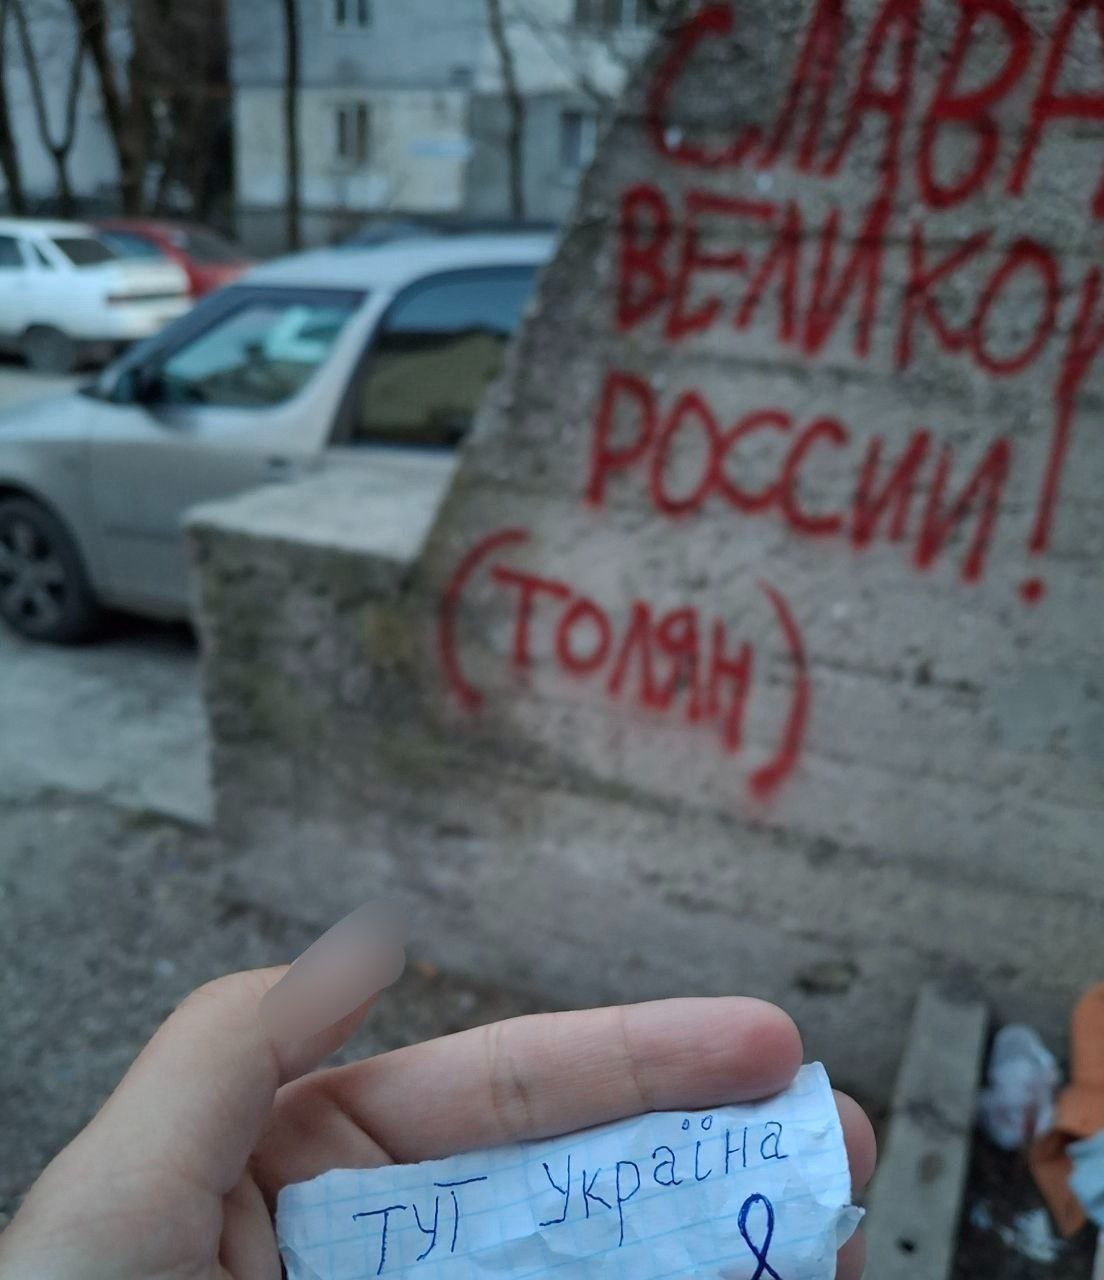 СЛАВА
ВЕЛИКОЙ
РОССИИ!
(ТОЛЯН)
ТУТ Україна